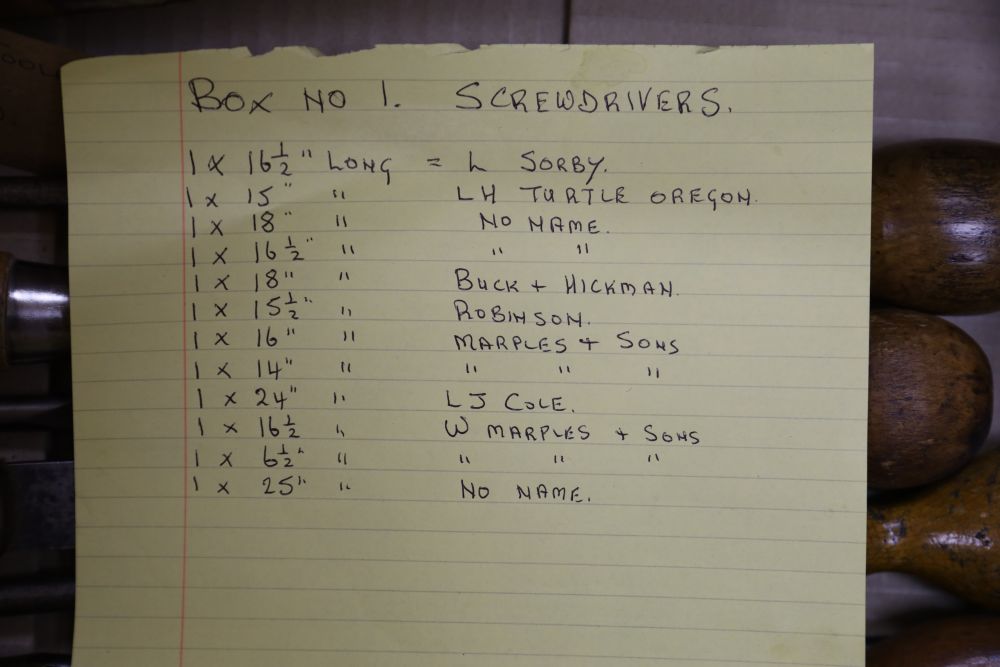 BOX NO 1. SCREWDRIVERS.
1 x 16 1/2" LONG = L SORBY.
1 x 15" " LH TURTLE OREGON.
1 x 18" " NO NAME.
1 x 16 1/2" " " "
1 x 18" " BUCK + HICKMAN.
1 x 15 1/2" " ROBINSON.
1 x 16" " MARPLES + SONS
1 x 14" " " " "
1 x 24" " LJ COLE.
1 x 16 1/2 " W MARPLES + SONS
1 x 6 1/2" " " " "
1 x 25" " NO NAME.